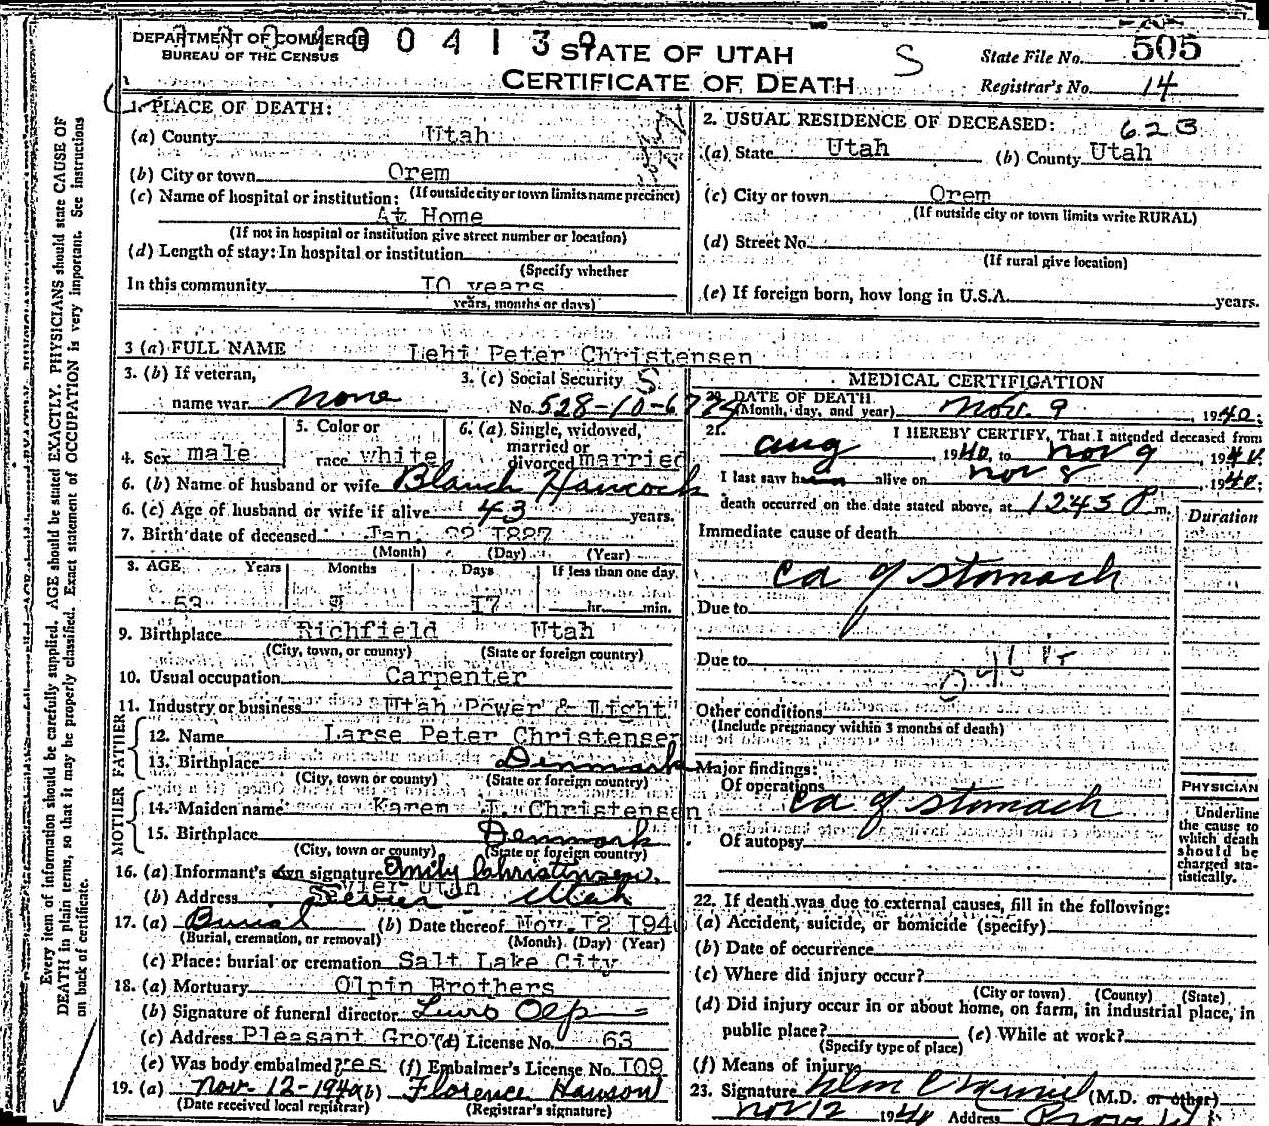 DEPARTMENT OF COMMERCE
BUREAU OF THE CENSUS
4004139
STATE OF UTAH
CERTIFICATE OF DEATH
S
State File No. 505
Registrar's No. 14
1. PLACE OF DEATH:
(a) County Utah
(b) City or town Orem
(If outside city or town limits name precinct)
(c) Name of hospital or institution:
At Home
(If not in hospital or institution give street number or location)
(d) Length of stay: In hospital or institution
(Specify whether
In this community IO years
years, months or days)
2. USUAL RESIDENCE OF DECEASED: 623
(a) State Utah (b) County Utah
(c) City or town Orem
(If outside city or town limits write RURAL)
(d) Street No.
(If rural give location)
(e) If foreign born, how long in U.S.A. years.
3 (a) FULL NAME Lehi Peter Christensen
3. (b) If veteran, name war none
3. (c) Social Security No. 528-10-6
4. Sex male
5. Color or race white
6. (a) Single, widowed, married or divorced married
6. (b) Name of husband or wife Blanch Hancock
6. (c) Age of husband or wife if alive 43 years.
7. Birth date of deceased Jan. 22 I887
(Month) (Day) (Year)
8. AGE Years Months Days If less than one day
53 9 I7 hr. min.
9. Birthplace Richfield Utah
(City, town, or county) (State or foreign country)
10. Usual occupation Carpenter
11. Industry or business Utah Power & Light
FATHER
12. Name Larse Peter Christensen
13. Birthplace Denmark
(City, town or county) (State or foreign country)
MOTHER
14. Maiden name Karem T. Christensen
15. Birthplace Denmark
(City, town or county) (State or foreign country)
16. (a) Informant's own signature Emily Christensen.
(b) Address Sevier Utah
17. (a) Burial (b) Date thereof Nov. I2 I940
(Burial, cremation, or removal) (Month) (Day) (Year)
(c) Place: burial or cremation Salt Lake City
18. (a) Mortuary Olpin Brothers
(b) Signature of funeral director
(c) Address Pleasant Gro (d) License No. 63
(e) Was body embalmed? yes (f) Embalmer's License No. I09
19. (a) Nov-12-1940 (b) Florence Hanson
(Date received local registrar) (Registrar's signature)
MEDICAL CERTIFICATION
20. DATE OF DEATH
(Month, day, and year) Nov. 9 1940
21. I HEREBY CERTIFY, That I attended deceased from
Aug, 1940, to Nov 9, 1940
I last saw him alive on Nov 8, 1940
death occurred on the date stated above, at 1245 P m.
Duration
Immediate cause of death
ca of stomach
Due to
Due to
Other conditions
(Include pregnancy within 3 months of death)
Major findings:
Of operations ca of stomach
Of autopsy
PHYSICIAN
Underline the cause to which death should be charged statistically.
22. If death was due to external causes, fill in the following:
(a) Accident, suicide, or homicide (specify)
(b) Date of occurrence
(c) Where did injury occur?
(City or town) (County) (State)
(d) Did injury occur in or about home, on farm, in industrial place, in
public place? (e) While at work?
(Specify type of place)
(f) Means of injury
23. Signature (M.D. or other)
Nov 12 1940 Address Provo Ut
Every item of information should be carefully supplied. AGE should be stated EXACTLY. PHYSICIANS should state CAUSE OF
DEATH in plain terms, so that it may be properly classified. Exact statement of OCCUPATION is very important. See instructions
on back of certificate.